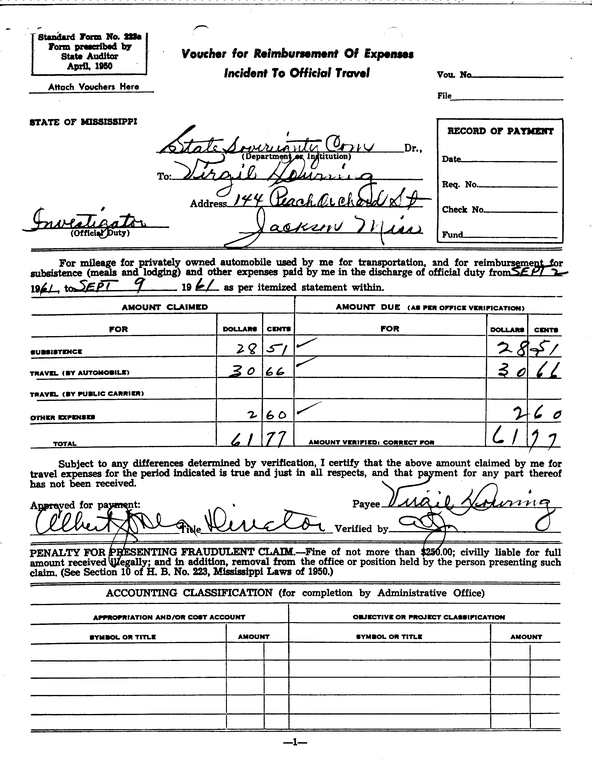 Standard Form No. 223a
Form prescribed by
State Auditor
April, 1950
Attach Vouchers Here
Voucher for Reimbursement Of Expenses
Incident To Official Travel
Vou. No.
File
STATE OF MISSISSIPPI
State Sovereignty Com Dr.,
(Department or Institution)
To: Virgil Downing
Address 144 Peach Orchard St
Jackson Miss
Investigator
(Official Duty)
RECORD OF PAYMENT
Date
Req. No.
Check No.
Fund
For mileage for privately owned automobile used by me for transportation, and for reimbursement for
subsistence (meals and lodging) and other expenses paid by me in the discharge of official duty from SEPT 2
1961, to SEPT 9 1961 as per itemized statement within.
AMOUNT CLAIMED AMOUNT DUE (AS PER OFFICE VERIFICATION)
FOR DOLLARS CENTS FOR DOLLARS CENTS
SUBSISTENCE 28 51 28 51
TRAVEL (BY AUTOMOBILE) 30 66 30 66
TRAVEL (BY PUBLIC CARRIER)
OTHER EXPENSES 2 60 2 60
TOTAL 61 77 AMOUNT VERIFIED: CORRECT FOR 61 77
Subject to any differences determined by verification, I certify that the above amount claimed by me for
travel expenses for the period indicated is true and just in all respects, and that payment for any part thereof
has not been received.
Approved for payment: Payee Virgil Downing
Albert Title Director Verified by
PENALTY FOR PRESENTING FRAUDULENT CLAIM.—Fine of not more than $250.00; civilly liable for full
amount received illegally; and in addition, removal from the office or position held by the person presenting such
claim. (See Section 10 of H. B. No. 223, Mississippi Laws of 1950.)
ACCOUNTING CLASSIFICATION (for completion by Administrative Office)
APPROPRIATION AND/OR COST ACCOUNT OBJECTIVE OR PROJECT CLASSIFICATION
SYMBOL OR TITLE AMOUNT SYMBOL OR TITLE AMOUNT
—1—